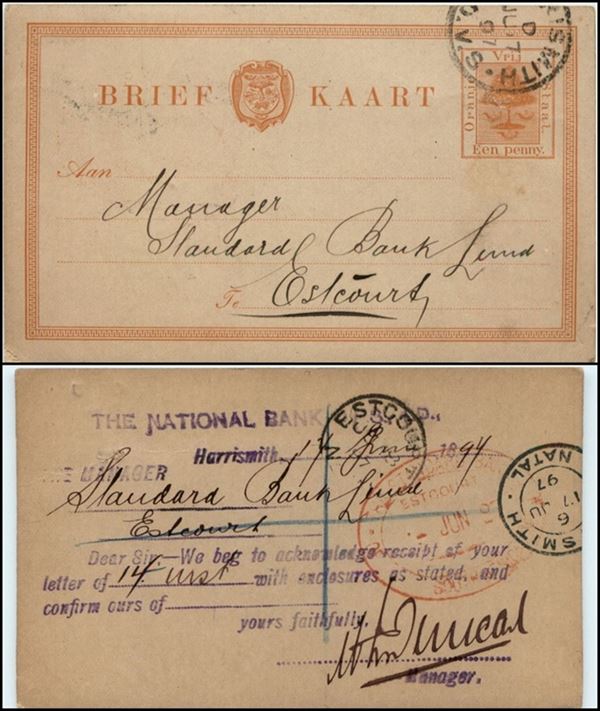 SMITH
D
JU 17
97
O.V.S.
Vrij
Oranje Staat.
Een penny.
BRIEF KAART
Aan
Manager
Standard Bank Limd
Te Estcourt
THE NATIONAL BANK
Harrismith, 17 June 1897
THE MANAGER
Standard Bank Limd
Estcourt
Dear Sir,—We beg to acknowledge receipt of your
letter of 14 inst with enclosures as stated, and
confirm ours of
yours faithfully,
Duncan
Manager.
ESTCOURT
ESTCOURT
JUN
SMITH
NATAL
6
17 JU
97